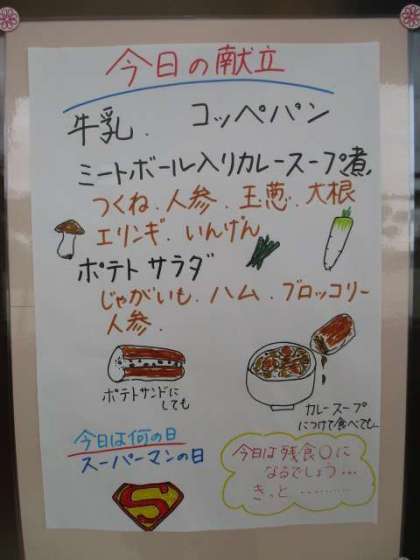 今日の献立
牛乳. コッペパン
ミートボール入りカレースープ煮
つくね.人参.玉葱.大根
エリンギ.いんげん
ポテトサラダ
じゃがいも.ハム.ブロッコリー
人参.
ポテトサンドに
しても
カレースープ
につけて食べても…
今日は何の日
スーパーマンの日
S
今日は残食〇に
なるでしょう…
きっと…………